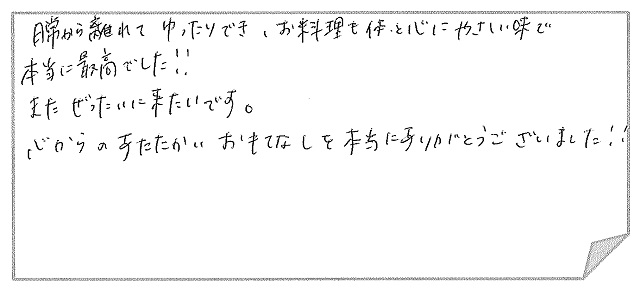 日常から離れて ゆったりでき、お料理も体と心にやさしい味で
本当に最高でした!!
また ぜったいに来たいです。
心からのあたたかい おもてなしを本当にありがとうございました!!